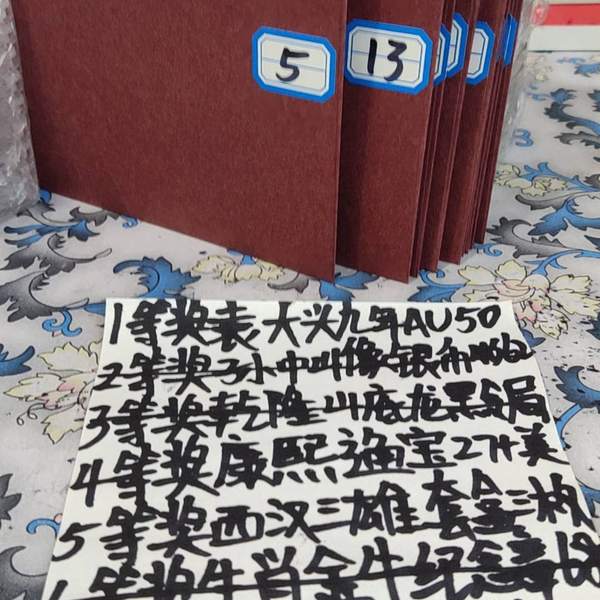 5
13
1等奖袁大头九年AU50
2等奖孙小中山像银币MS62
3等奖乾隆山底龙黑钱局
4等奖康熙通宝27+美
5等奖西汉三雄套盒三枚
等奖生肖金牛纪念